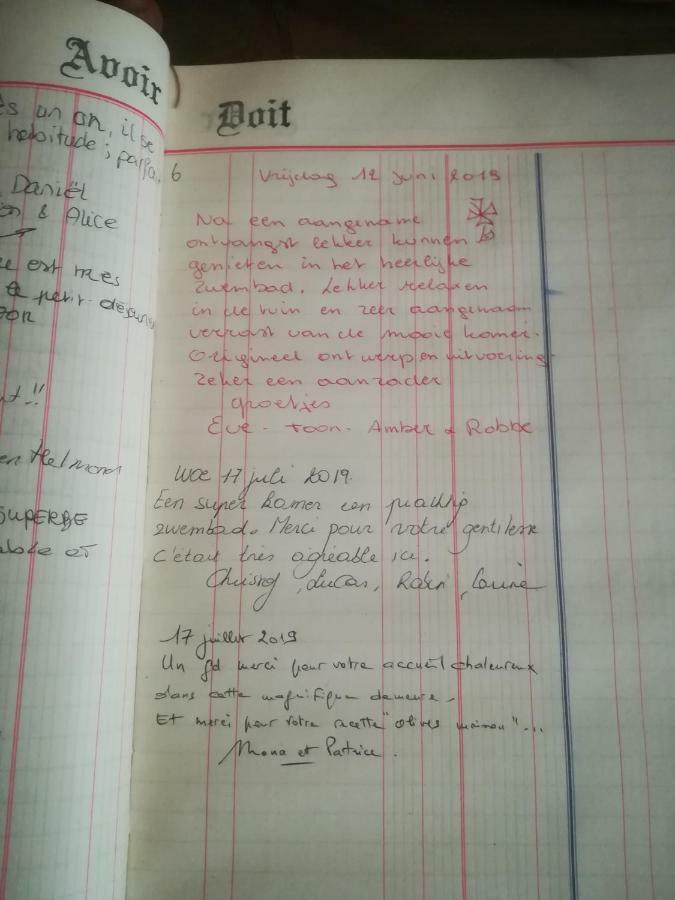 Avoir
un an, il se
habitude; parfa.
Daniël
& Alice
est très
petit-déjeuner
en Helmond
SUPERBE
Doit
6
Vrijdag 12 juni 2019
Na een aangename
ontvangst lekker kunnen
genieten in het heerlijke
zwembad. Lekker relaxen
in de tuin en zeer aangenaam
verrast van de mooie kamer.
Origineel ontwerp en uitvoering
zeker een aanrader
groetjes
Eve - Toon - Amber & Robbe
WOE 17 juli 2019.
Een super kamer een prachtig
zwembad. Merci pour votre gentillesse
c'était très agréable ici.
Lucas, Robin
17 juillet 2019
Un gd merci pour votre accueil chaleureux
dans cette magnifique demeure.
Et merci pour votre recette "olives maison"...
Mona et Patrice.